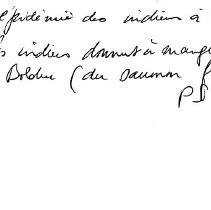 épidémie des indiens à
indiens donnent à mang
Bolduc (du saumon